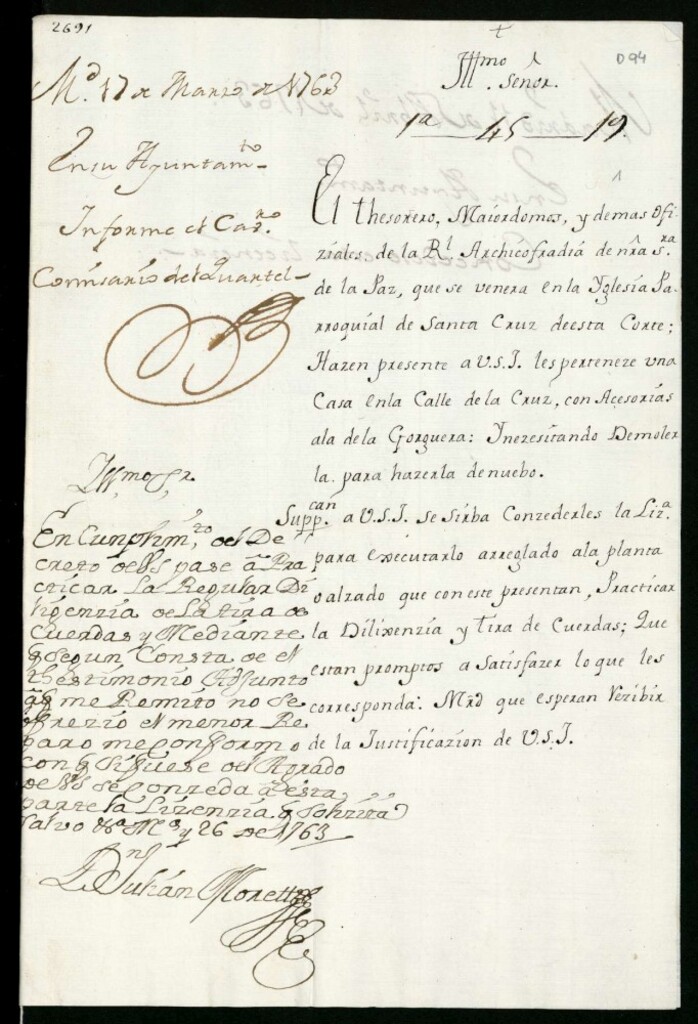 2691
D94
+
Yllmo Señor.
1a 45 19.
Md. 17 de Marzo de 1763
En su Ayuntamto
Informe el Cavro.
Comisario del Quartel
El Thesorero, Maiordomos, y demas Ofi
ziales de la Rl. Archicofradiâ de nrâ Sra.
de la Paz, que se venera en la Yglesia Pa
rroquial de Santa Cruz deesta Corte;
Hazen presente a V.S.I. les perteneze una
Casa enla Calle de la Cruz, con Acesorias
ala de la Gorguera: Ynezesitando Demoler
la para hazerla denuebo.
Suppcan. a V.S.I. se sirba Conzederles la Liza.
para executarlo arreglado ala planta
o alzado que con este presentan, Practicar
la Dilixenzia y tira de Cuerdas; Que
estan promptos a Satisfazer lo que les
corresponda: Mrd que esperan Rezibir
de la Justificazion de V.S.I.
Yllmo Sr.
En Cunplimto. del De
creto de VS pase â Pra
cticar La Regular Di
ligenzia de La tira de
Cuerdas y Mediante
q Segun Consta de el
thestimonio Adjunto
âq me Remito no se
ofrezio el menor Re
paro me conformo
con q Si fuese del Agrado
de VS se conzeda â esta
parte la Lizenzia q Solizita
Salvo Md y 26 de 1763
Dn Julián Moret